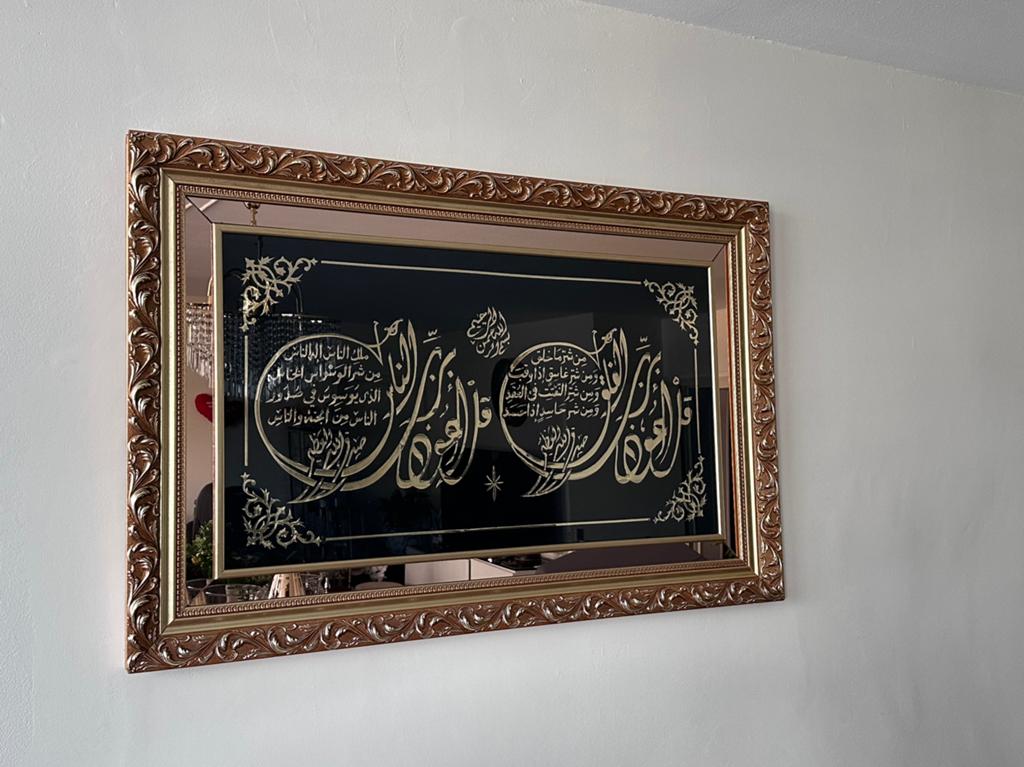 بسم الله الرحمن الرحيم
قل أعوذ برب الفلق
من شر ما خلق
ومن شر غاسق إذا وقب
ومن شر النفثت في العقد
ومن شر حاسد إذا حسد
صدق الله العظيم
قل أعوذ برب الناس
ملك الناس اله الناس
من شر الوسواس الخناس
الذي يوسوس في صدور
الناس من الجنة والناس
صدق الله العظيم